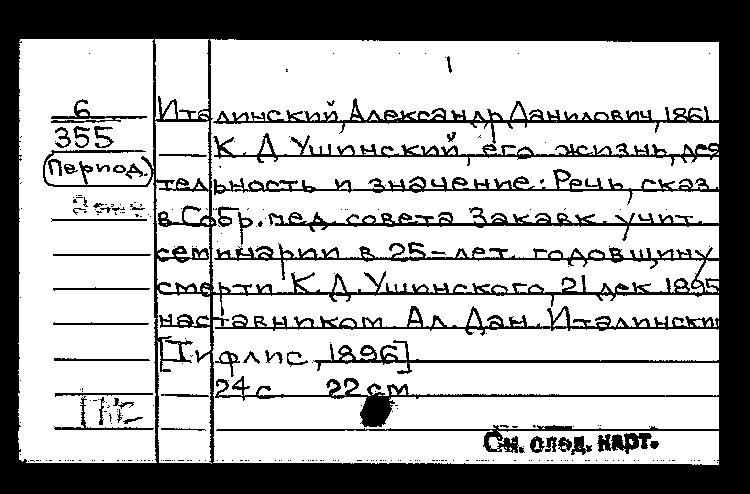 1
6
355
(Период.)
Италинский, Александр Данилович, 1861
К. Д. Ушинский, его жизнь, дея
тельность и значение: Речь, сказ.
в Собр. пед. совета Закавк. учит.
семинарии в 25-лет. годовщину
смерти К. Д. Ушинского, 21 дек. 1895
наставником Ал. Дан. Италински
[Тифлис, 1896].
24 с. 22 см.
См. след. карт.